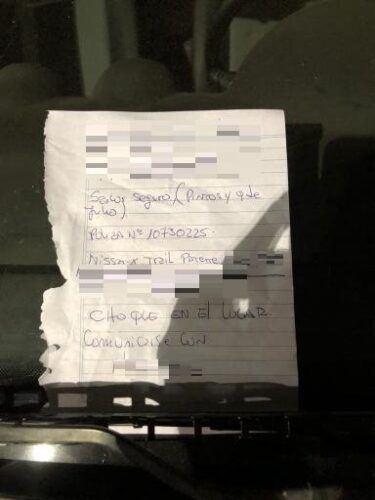 Seguro (Pinzon y 9 de
Julio)
Poliza Nº 10730225.
Nissan X Trail Patente
CHOQUE EN EL LUGAR.
COMUNICARSE CON